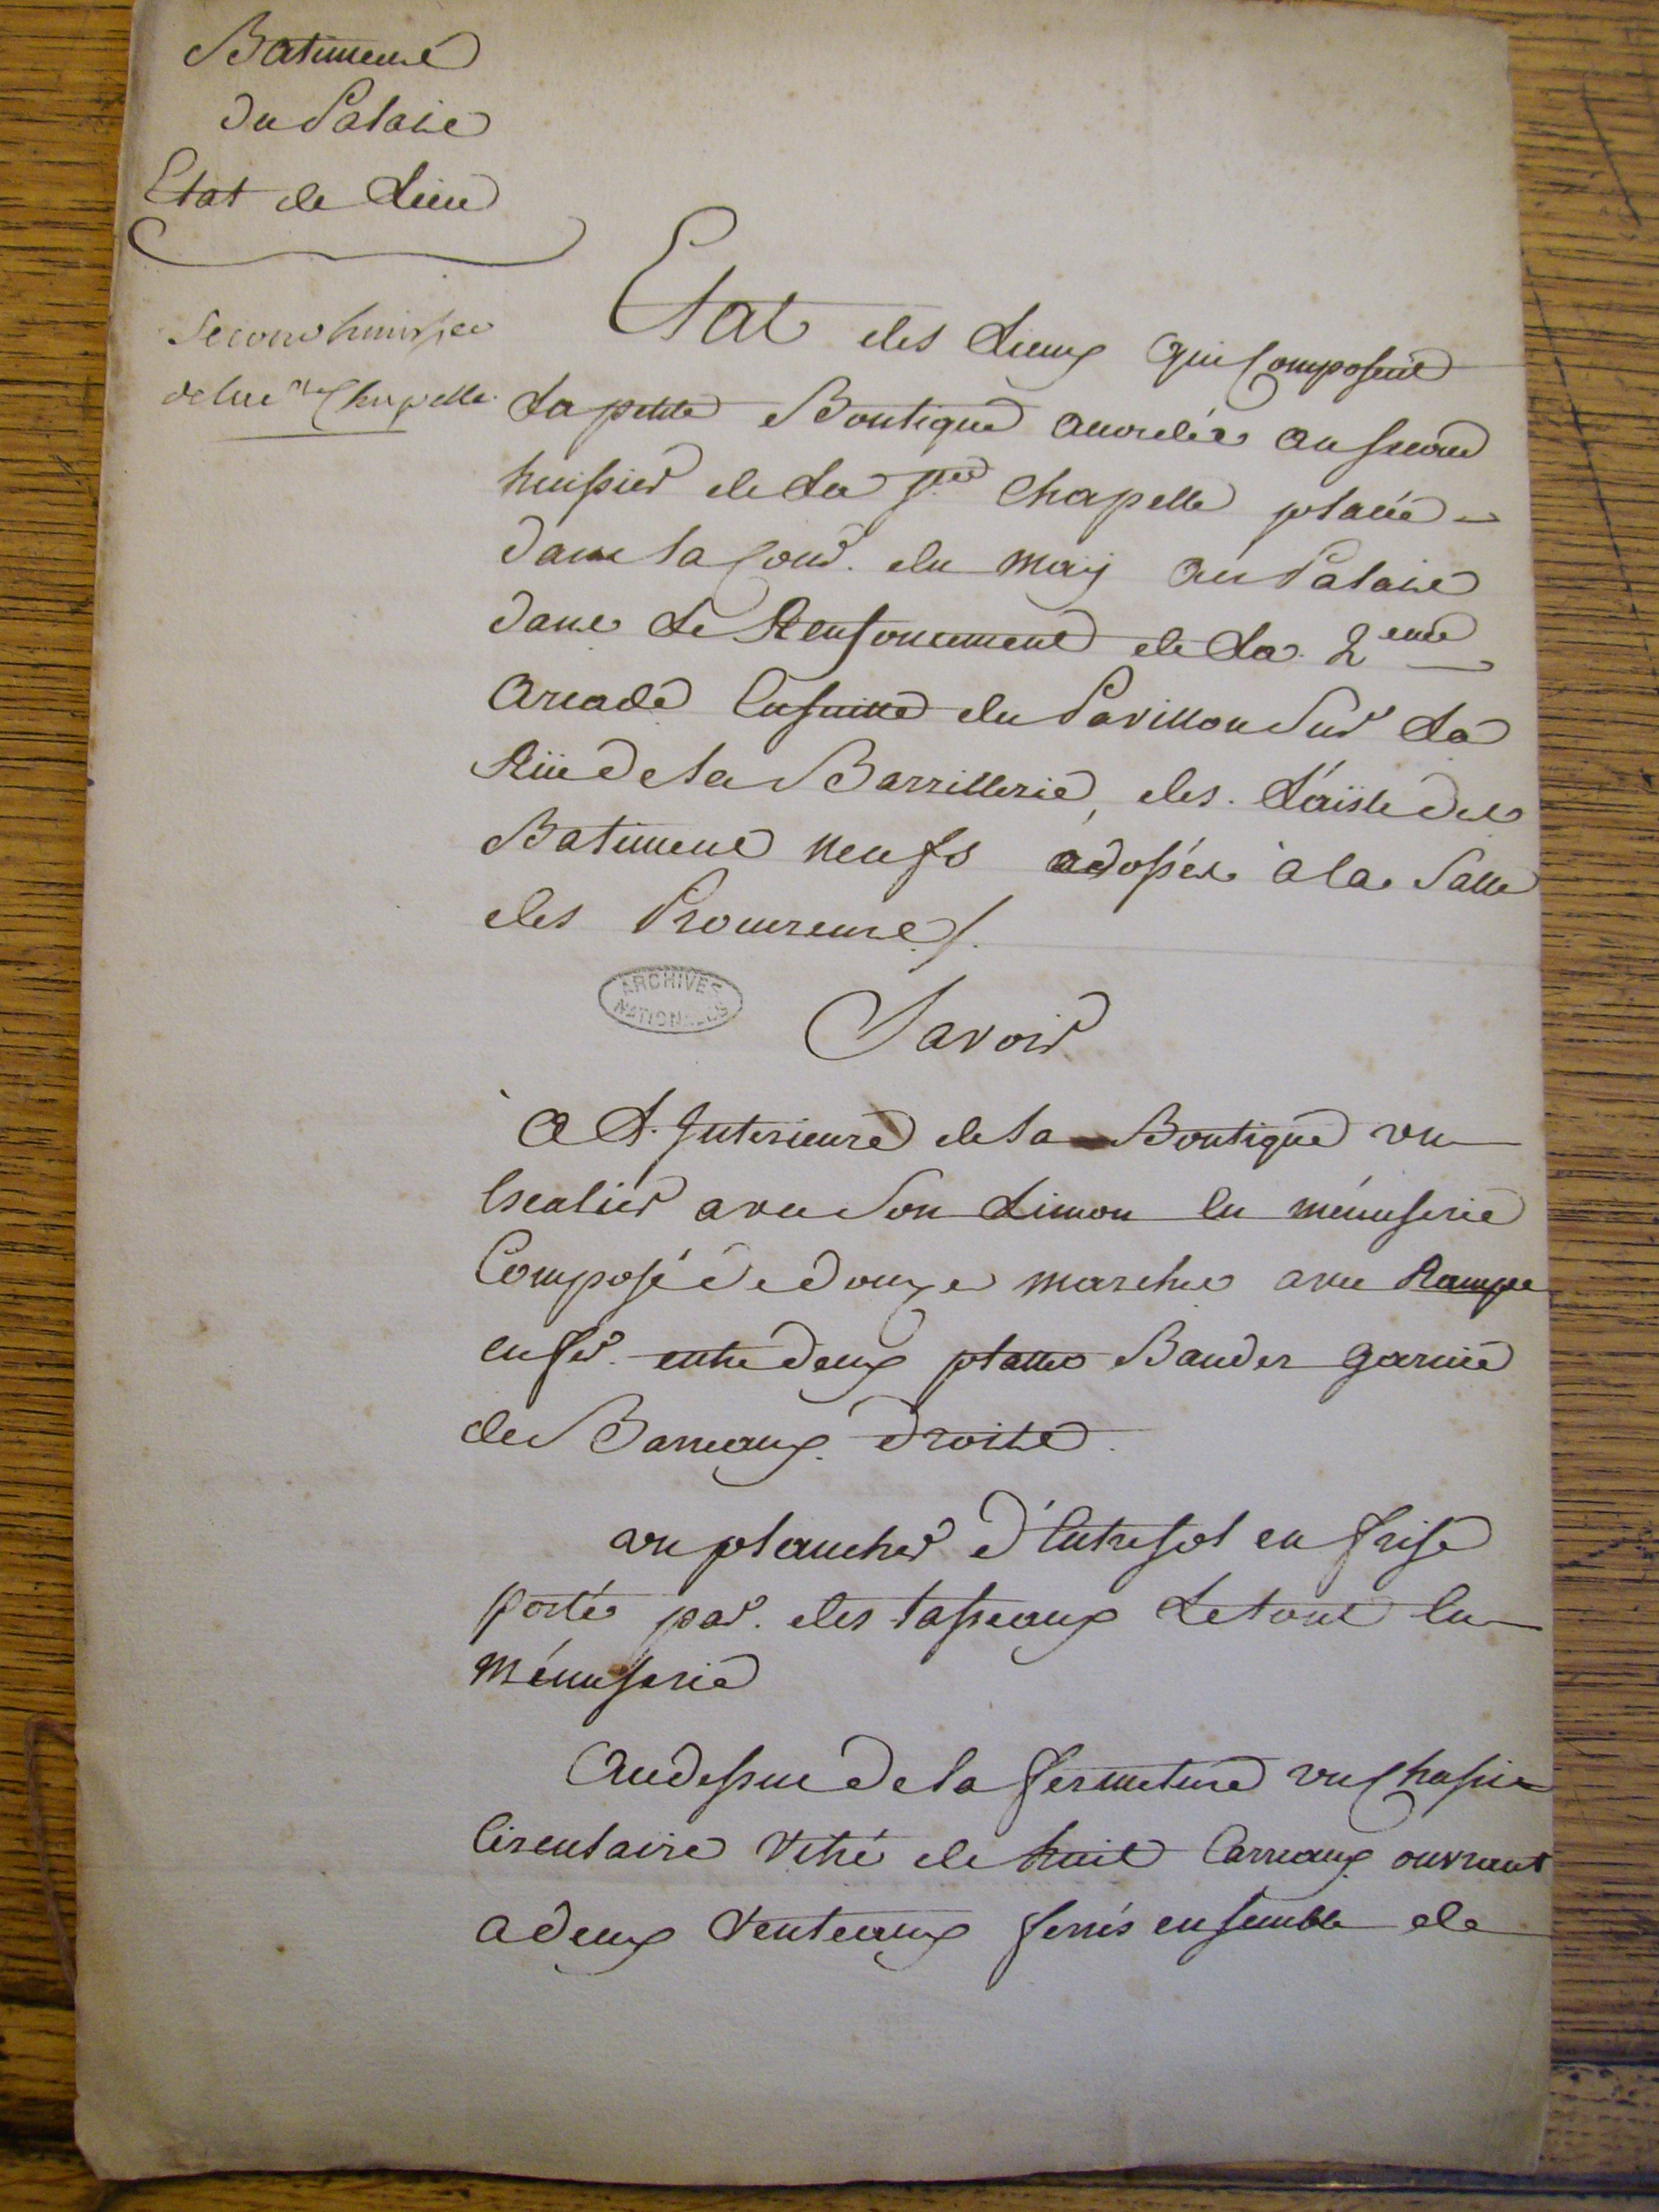 Batiment
du Palais
Etat de Lieu
Second huissier
de la Ste Chapelle
Etat des Lieux qui Composent
La petite Boutique accordée au second
huissier de La Ste Chapelle placée
dans la Cour du May au Palais
dans Le Renfoncement de La 2eme
Arcade Ensuitte du Pavillon Sur La
Rüe de la Barrillerie, des L'aisle des
Batiment neufs adossés à la Salle
des Procureurs/.
ARCHIVES
NATIONALES
Savoir
A L'Interieure de la Boutique un
Escalier avec Son Limon En menuserie
Composé de douze marches avec Rampe
en fer entre deux plattes Bandes garnie
de Barreaux droits
un plancher d'Entresol en frise
porté par des tasseaux Le tout En
Ménuserie
Au dessus de la fermeture un Chassis
Circulaire Vitré de huit Carreaux ouvrant
a deux Venteaux ferrés ensemble de